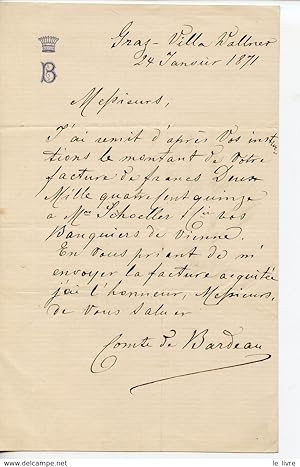 B
Graz - Villa Wallner
24 Janvier 1871
Messieurs,
J'ai remit d'après Vos instruc
tions le montant de Votre
facture de francs Deux
Mille quatre cent quinze
à Mrs Schoeller & Cie vos
Banquiers de Vienne
En Vous priant de m'
envoyer la facture acquitée
j'ai l'honneur, Messieurs,
de Vous saluer
Comte de Bardeau
www.delcampe.net
le livre